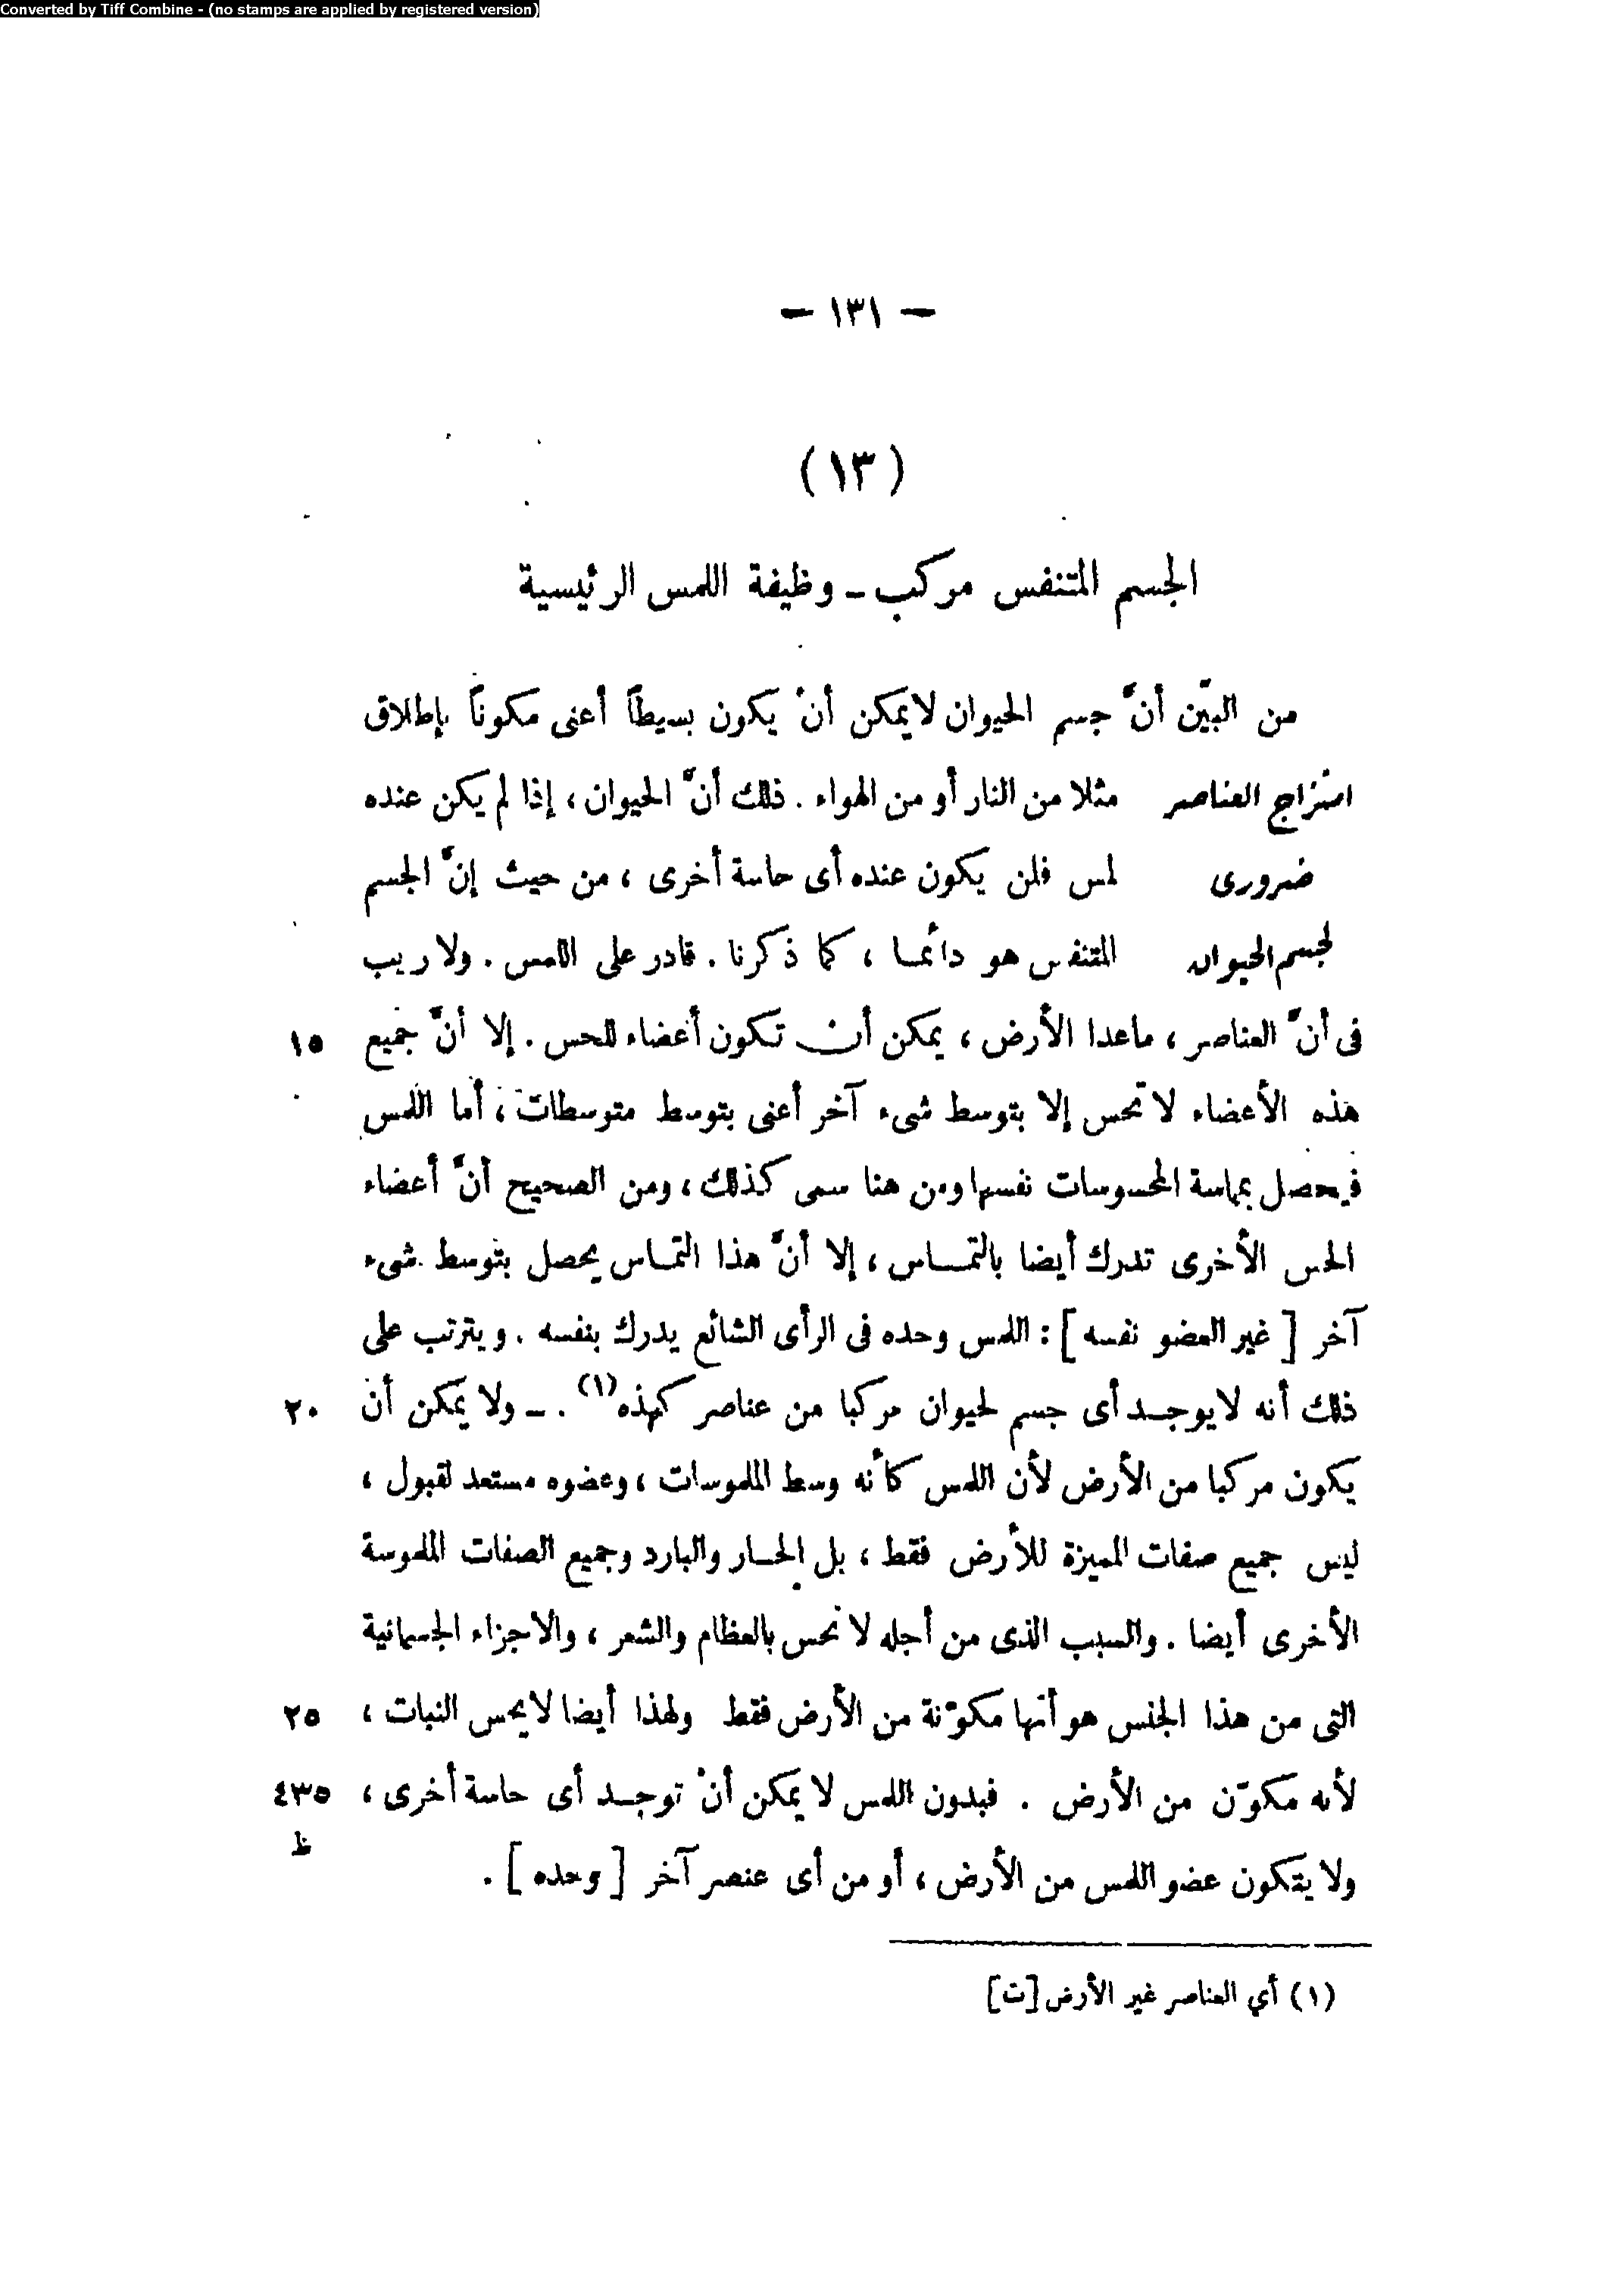 Converted by Tiff Combine - (no stamps are applied by registered version)
— ١٣١ —
(١٣)
الجسم المتنفس مركب - وظيفة اللمس الرئيسية
من البيّن أنَّ جسم الحيوان لايمكن أنْ يكون بسيطاً أعنى مكوناً بإطلاق
امتزاج العناصر مثلا من النار أو من الهواء . ذلك أنَّ الحيوان ، إذا لم يكن عنده
ضرورى لمس فلن يكون عنده أى حاسة أخرى ، من حيث إنَّ الجسم
لجسم الحيوان المتنفس هو دائما ، كما ذكرنا . قادر على اللمس . ولا ريب
فى أنَّ العناصر ، ماعدا الأرض ، يمكن أن تكون أعضاء للحس . إلا أنَّ جميع ١٥
هذه الأعضاء لا تحس إلا بتوسط شىء آخر أعنى بتوسط متوسطات ، أما اللمس
فيحصل بمماسة المحسوسات نفسها ومن هنا سمى كذلك ، ومن الصحيح أنَّ أعضاء
الحس الأخرى تدرك أيضا بالتماس ، إلا أنَّ هذا التماس يحصل بتوسط شىء
آخر [ غير العضو نفسه ] : اللمس وحده فى الرأى الشائع يدرك بنفسه . ويترتب على
ذلك أنه لا يوجد أى جسم لحيوان مركبا من عناصر كهذه (١) . - ولا يمكن أن ٢٠
يكون مركبا من الأرض لأن اللمس كأنه وسط الملموسات ، وعضوه مستعد لقبول ،
ليس جميع صفات المميزة للأرض فقط ، بل الحار والبارد وجميع الصفات الملموسة
الأخرى أيضا . والسبب الذى من أجله لا نحس بالعظام والشعر ، والاجزاء الجسمانية
التى من هذا الجنس هو أنها مكوّنة من الأرض فقط ولهذا أيضا لا يحس النبات ، ٢٥
لأنه مكوّن من الأرض . فبدون اللمس لا يمكن أنْ توجد أى حاسة أخرى ، ٤٣٥
ظ
ولا يتكون عضو اللمس من الأرض ، أو من أى عنصر آخر [ وحده ] .
(١) أي العناصر غير الأرض [ت]